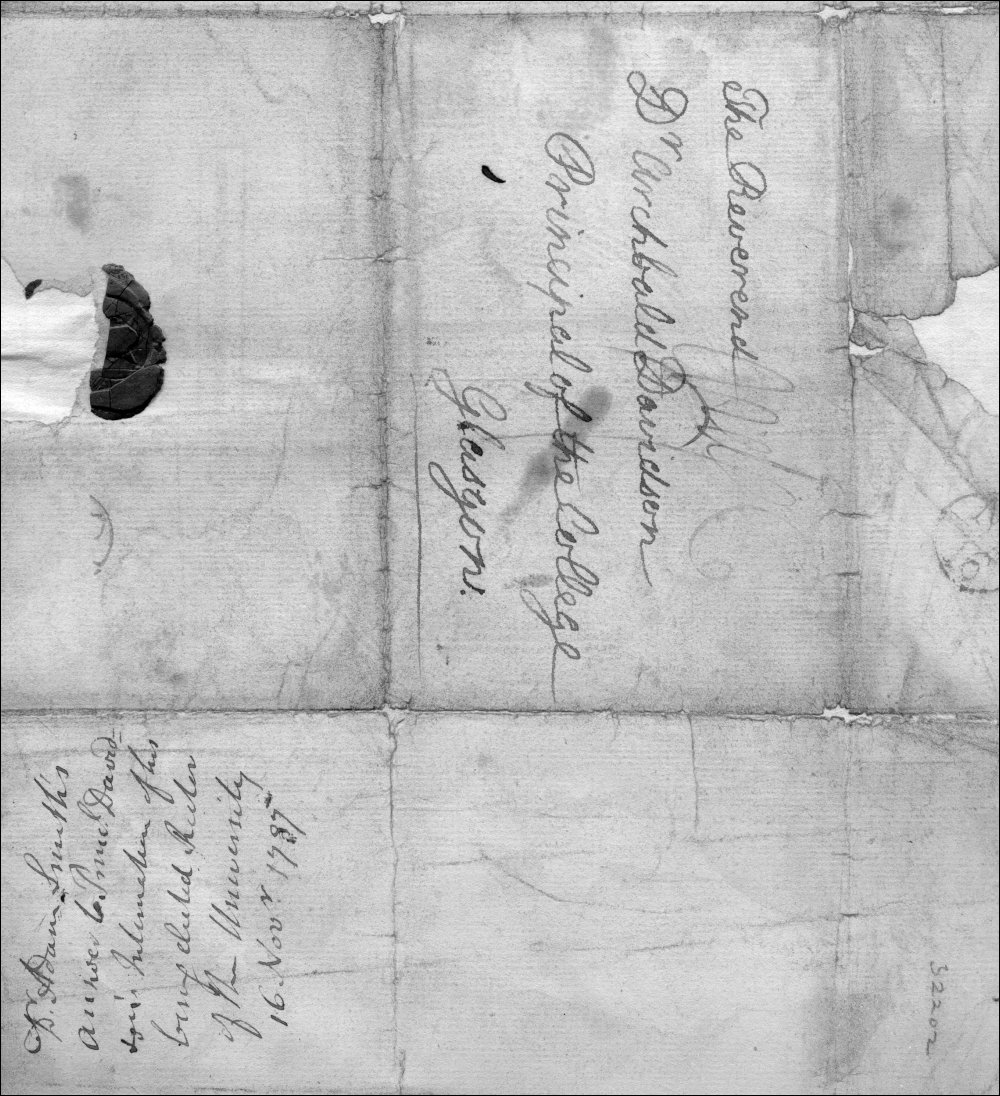 The Reverend
Dr Archbald Davidson
Principal of the College
Glasgow.
Dr. Adam Smith's
answer to Princl. David-
son's Intimation of his
being elected Rector
of the University
16. Novr. 1787
32202